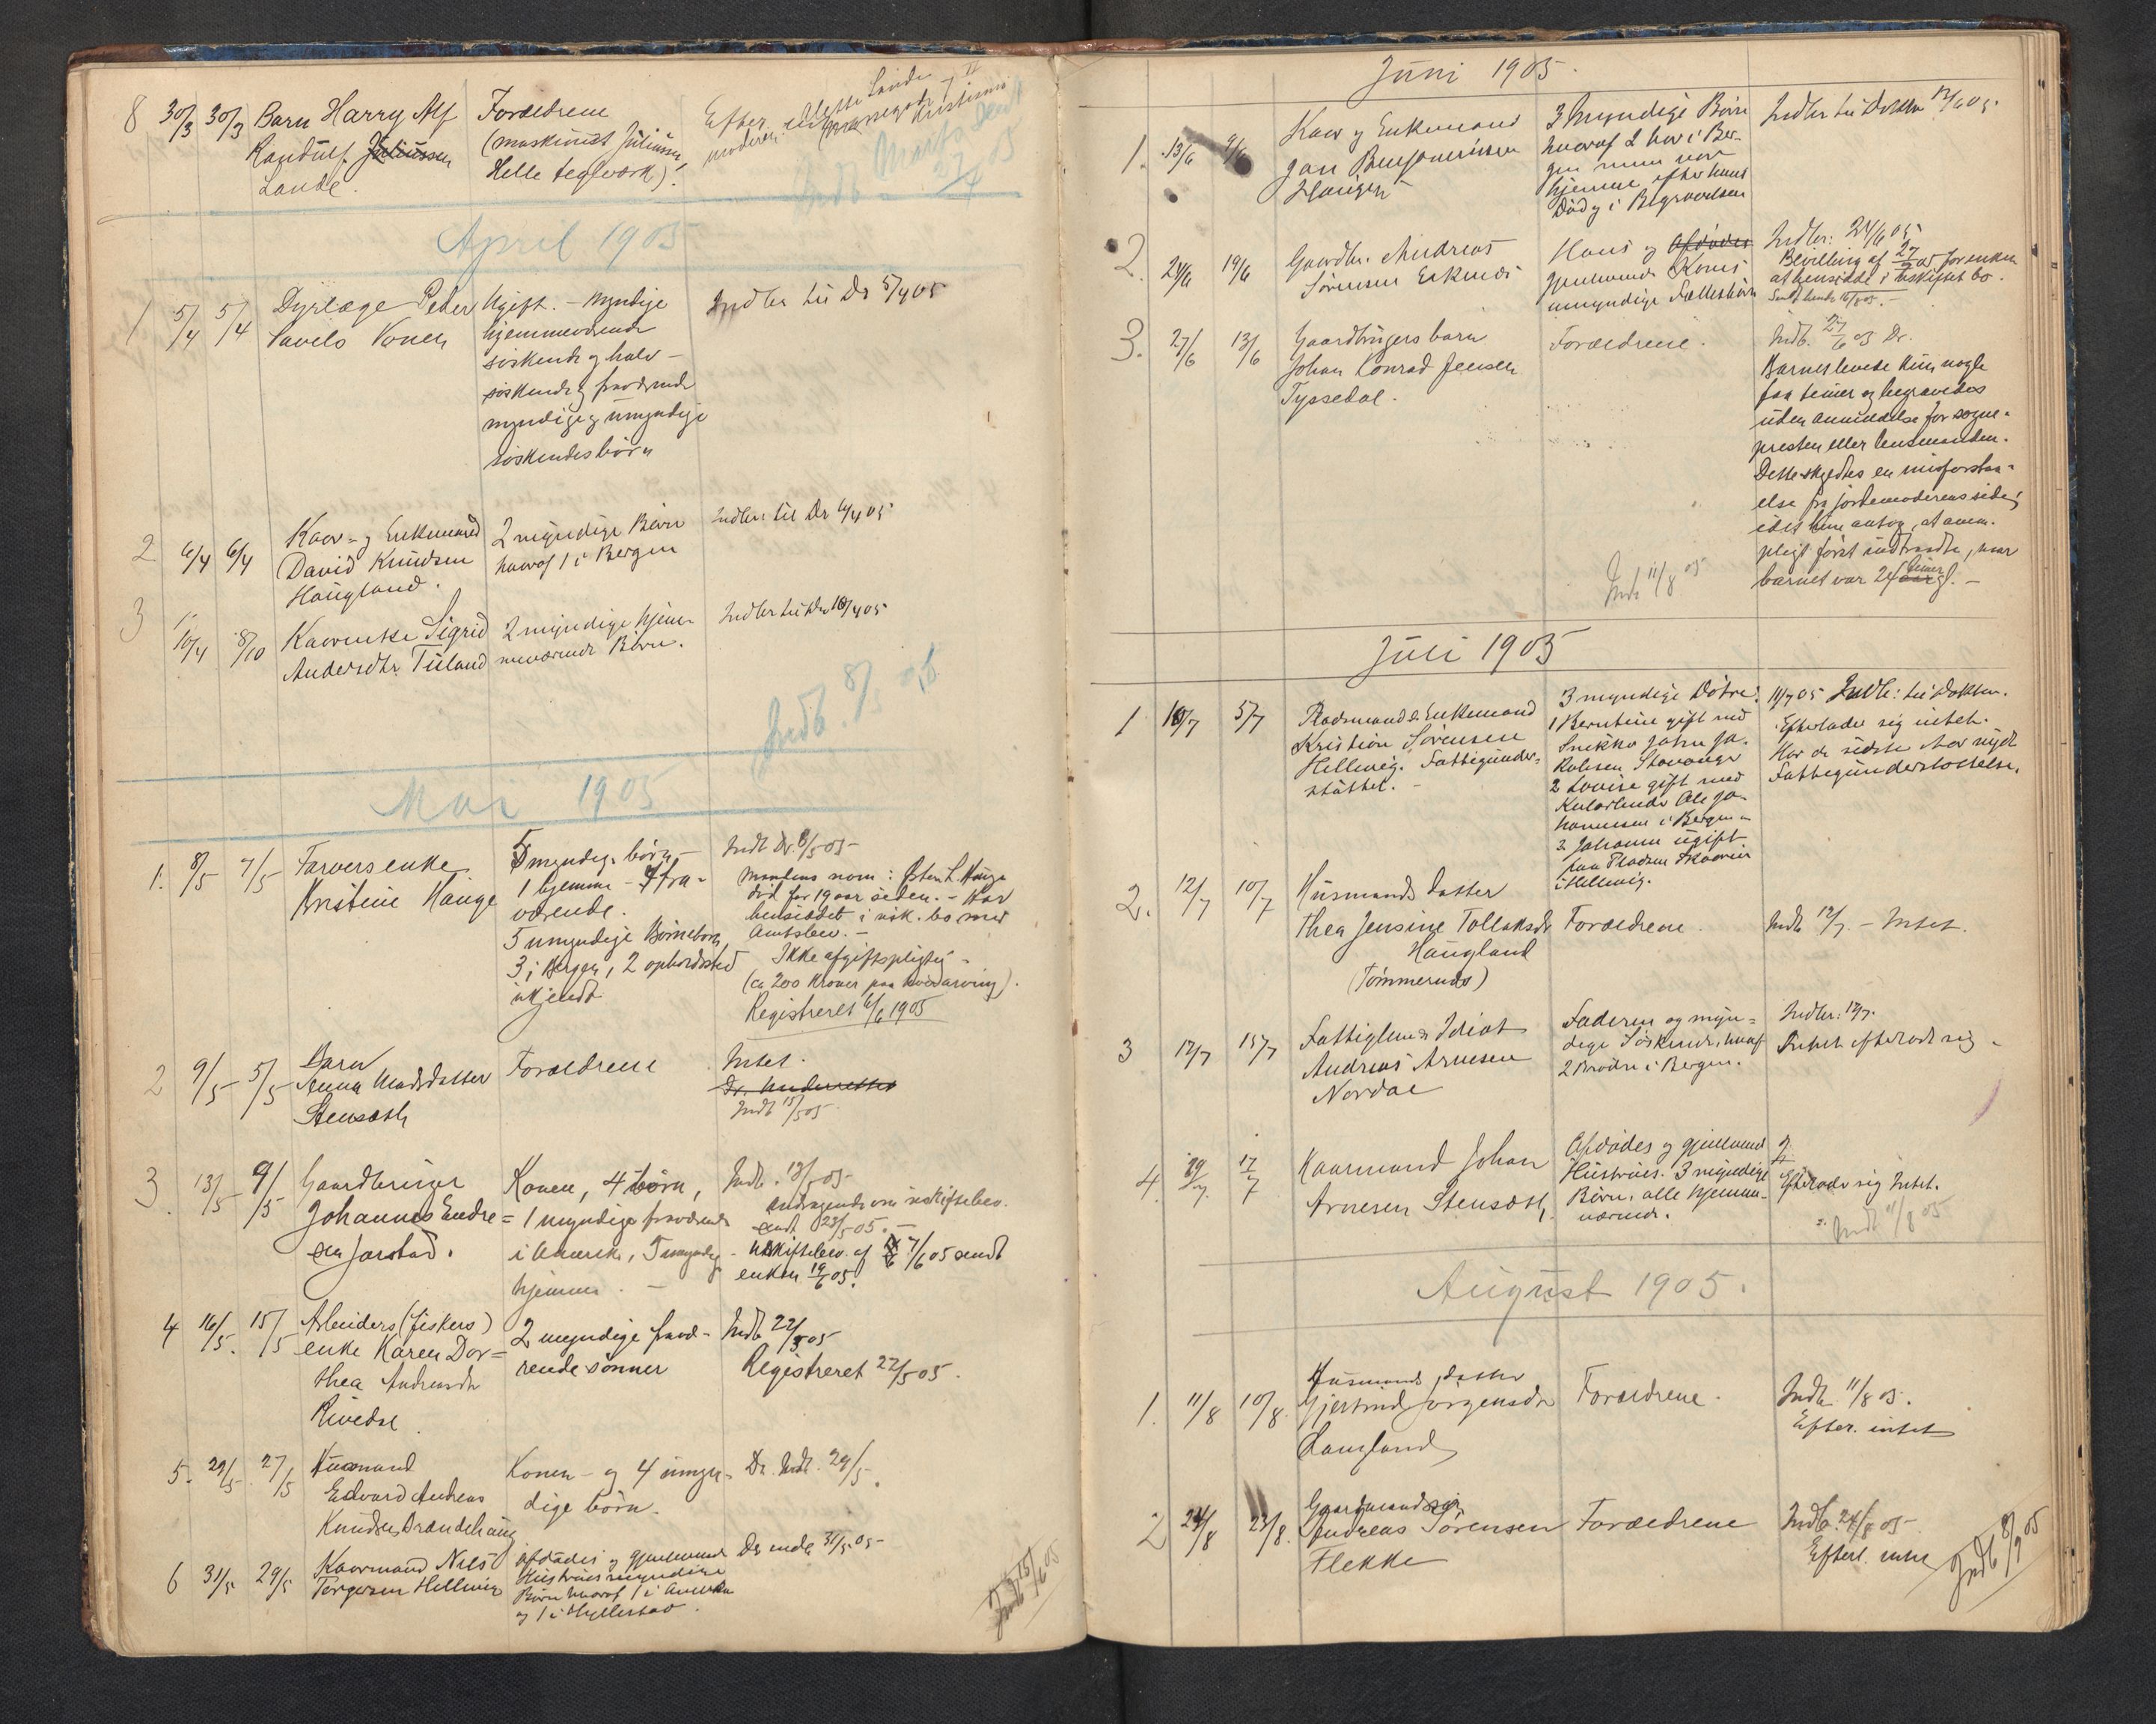 8 30/3 30/3 Barn Harry Alf Forældrene
Randulf Juliussen (maskinist Juliussen,
Lande. Helle teglværk).
Efter
moderen
27/4 05
April 1905
1 5/4 5/4 Dyrlæge Peder Ugift. – Myndige Indber til Dr 5/4 05
Savelo Vonen hjemmeværende
søskende og halv-
søskende og fraværende
myndige og umyndige
søskendebørn
2 6/4 6/4 Kaar- og Enkemand 2 myndige Børn Indber til Dr 6/4 05
David Knudsen hvoraf 1 i Bergen
Haugland.
3 10/4 8/10 Kaarenke Sigrid 2 myndige hjem-
Andersdtr. Tuland meværende Børn.
Indber til Dr 10/4 05
Indb. 8/5 05.
Mai 1905
1. 8/5 7/5 Farvers enke 5 myndige børn – Indb Dr. 8/5 05
Kristine Hauge 1 hjemme – 4 fra-
værende.
5 umyndige Børnebørn,
3 i Bergen, 2 opholdssted
ukjendt
Mandens navn: Østen L. Hauge
død for 19 aar siden. – Har
hensiddet i usk. bo med
Amtsbev. –
Ikke afgiftspligtig –
(ca 200 Kroner paa hver arving).
Registreret 6/6 1905
2 9/5 5/5 Barn Forældrene Intet.
Anna Madsdatter Dr. Underrettet
Stensæth Indb 15/5 05
3. 13/5 9/5 Gaardbruger Konen, 4 børn, Indb. 13/5 05
Johannes Endre= 1 myndige fraværende
sen Jarstad. i Amerika, 3 umyndig
hjemme. –
Andragende om uskiftebev.
sendt 23/5 05. –
Uskiftebev. af 7/6 05 sendt
enken 19/6 05.
4 16/5. 15/5 Arbeiders (fiskers) 2 myndige fravæ- Indb 22/5 05
enke Karen Dor= rende sønner Registreret 22/5 05.
thea Andreasdtr
Rivedal
5. 29/5 27/5 Husmand Konen – og 4 umyn- Dr. Indb. 29/5.
Edvard Andreas dige børn.
Knudsen Brændehaug
6 31/5 29/5 Kaarmand Nils Afdødes og gjenlevend Dr. indb 31/5 05
Torgersen Hellevig Hustrues myndige
Børn hvoraf 1 i Amerika
og 1 i Hyllestad.
Indb 15/6 05
Juni 1905.
1. 13/6 9/6 Kaar og Enkemand 3 Myndige Børn Indber til Doktor 13/6 05.
Jan hvoraf 2 bor i Ber-
Haugen gen men var
hjemme efter hans
Død og i Begravelsen
2. 24/6 19/6 Gaardbr. Andreas Hans og Afdødes Indber: 24/6 05.
Sørensen Eikenes gjenlevende Kones
umyndige Fællesbørn
Bevilling af for enken
at hensidde i uskiftet bo.
3. 27/6 13/6 Gaardbrugers barn Forældrene. Indb. 27/6 05 Dr.
Johan Konrad Jensen
Tyssedal.
Barnet levede kun nogle
faa timer og begravedes
uden anmeldelse for sogne-
presten eller lensmanden.
Dette skyldtes en misforstaa-
else fra jordemoderens side,
idet hun antog, at anm.
pligt først indtraadte, naar
barnet var 24 timer gl. –
Indb 11/8 05
Juli 1905
1 10/7 5/7 Pladsmand & Enkemand 3 myndige Døtre: 11/7 05 Indb: til Doktor.
Kristian Sørensen 1 Berntine gift med Efterlader sig intet.
Hellevig. Fattigunder= Snekker Johan Ja- Har de sidste Aar nydt
støttet. – kobsen Stavanger Fattigunderstøttelse.
2 Lovise gift med
Ole Jo-
hannesen i Bergen
3 Johanne ugift
paa Pladsen
i Hellevig.
2. 12/7 10/7 Husmands datter
Thea Jensine Tollaksdr Forældrene. Indb 12/7. – Intet.
Haugland
(Tømmernes)
3 17/7 15/7 Fattiglem & Idiot Faderen og myn= Indber: 17/7.
Andreas Arnesen dige Søskende, hvoraf Intet efterlodt sig.
Nordal 2 Brødre i Bergen.
4. 29/7. 17/7 Kaarmand Johan Afdødes og gjenlevend
Arnesen Stensæth. Hustrues. 3 myndige Efterlader sig Intet.
Børn, alle hjemme-
værende. Indb 11/8 05
August 1905.
1. 11/8 10/8. Husmands datter
Gjertrud Jørgensdr Forældrene. Indb. 11/8 05.
Laugland Efter. intet
2 24/8 23/8. Gaardmandssøn
Andreas Sørensen Forældrene Indb. 24/8 05
Flekke Efterl. intet
Indb 8/9 05